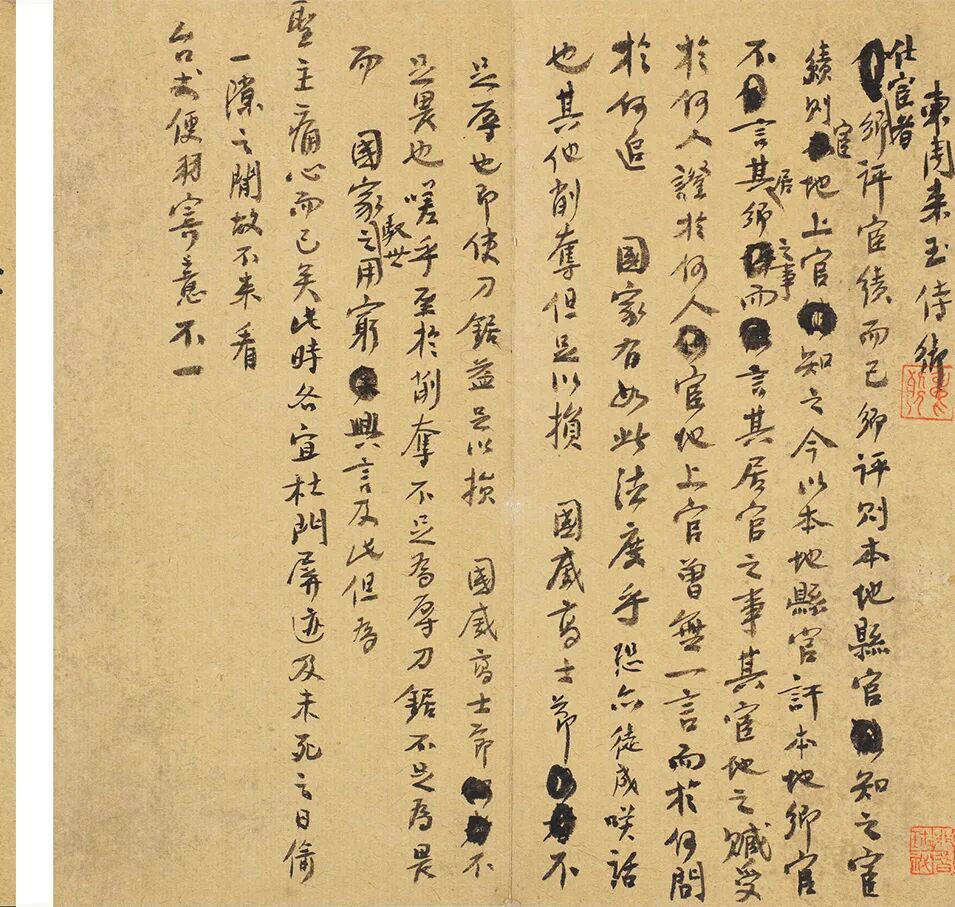 柬周来玉侍御
仕宦者鄉評宦績而已鄉評則本地縣官知之宦
績則宦地上官知之今以本地縣官訐本地鄉官
不言其居鄉之事而言其居官之事其宦地之贓受
於何人證於何人宦地上官曾無一言而於何問
於何追 國家有如此法度乎恐亦徒成咲話
也其他削奪但足以損 國威高士節不
足辱也即使刀鋸益足以損 國威高士節不
足畏也嗟乎至於削奪不足為辱刀鋸不足為畏
而 國家馭世之用窮興言及此但為
聖主痛心而已矣此時各宜杜門屏迹及未死之日偷
一隙之閒故不来看
台丈便羽寄意不一